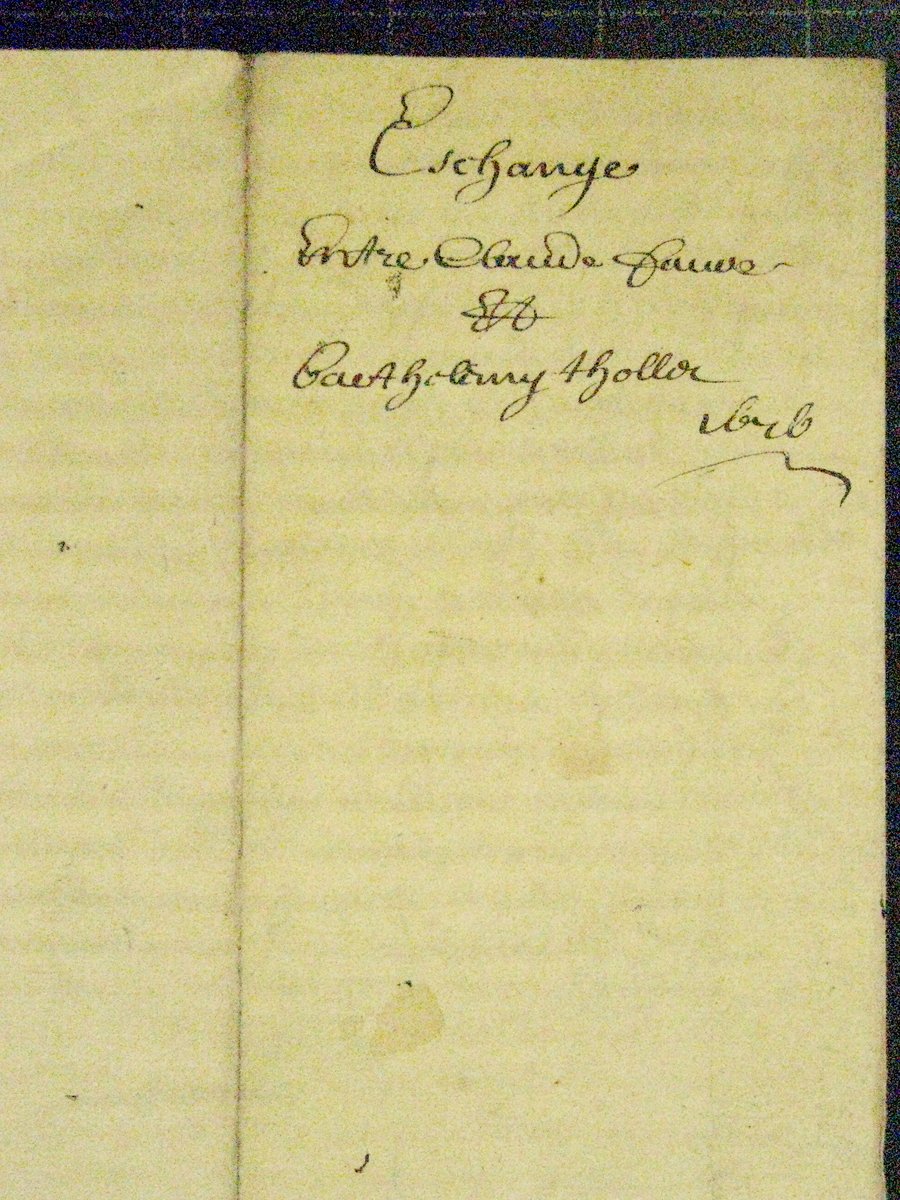 Eschange
Entre Claude Fauve
Et
Barthelemy thollet
1676